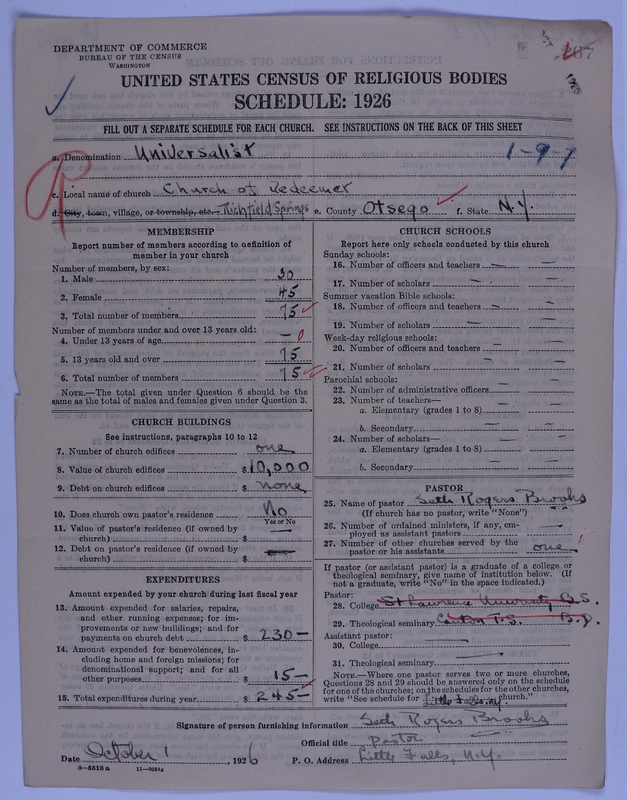 DEPARTMENT OF COMMERCE
BUREAU OF THE CENSUS
WASHINGTON
UNITED STATES CENSUS OF RELIGIOUS BODIES
SCHEDULE: 1926
FILL OUT A SEPARATE SCHEDULE FOR EACH CHURCH. SEE INSTRUCTIONS ON THE BACK OF THIS SHEET
a. Denomination Universalist 1-97
c. Local name of church Church of Redeemer
d. City, town, village, or township, etc. Richfield Springs e. County Otsego f. State N.Y.
MEMBERSHIP
Report number of members according to definition of member in your church
Number of members, by sex:
1. Male 30
2. Female 45
3. Total number of members 75
Number of members under and over 13 years old:
4. Under 13 years of age — 0
5. 13 years old and over 75
6. Total number of members 75
NOTE.—The total given under Question 6 should be the same as the total of males and females given under Question 3.
CHURCH BUILDINGS
See instructions, paragraphs 10 to 12
7. Number of church edifices one
8. Value of church edifices $10,000
9. Debt on church edifices $ none
10. Does church own pastor's residence No
Yes or No
11. Value of pastor's residence (if owned by church) $ —
12. Debt on pastor's residence (if owned by church) $ —
EXPENDITURES
Amount expended by your church during last fiscal year
13. Amount expended for salaries, repairs, and other running expenses; for improvements or new buildings; and for payments on church debt $ 230—
14. Amount expended for benevolences, including home and foreign missions; for denominational support; and for all other purposes $ 15—
15. Total expenditures during year $ 245—
CHURCH SCHOOLS
Report here only schools conducted by this church
Sunday schools:
16. Number of officers and teachers —
17. Number of scholars —
Summer vacation Bible schools:
18. Number of officers and teachers —
19. Number of scholars —
Week-day religious schools:
20. Number of officers and teachers —
21. Number of scholars —
Parochial schools:
22. Number of administrative officers —
23. Number of teachers—
a. Elementary (grades 1 to 8) —
b. Secondary —
24. Number of scholars—
a. Elementary (grades 1 to 8) —
b. Secondary —
PASTOR
25. Name of pastor Seth Rogers Brooks
(If church has no pastor, write "None")
26. Number of ordained ministers, if any, employed as assistant pastors —
27. Number of other churches served by the pastor or his assistants one
If pastor (or assistant pastor) is a graduate of a college or theological seminary, give name of institution below. (If not a graduate, write "No" in the space indicated.)
Pastor:
28. College St Lawrence University B.S.
29. Theological seminary Canton T.S. B.D.
Assistant pastor:
30. College —
31. Theological seminary —
NOTE.—Where one pastor serves two or more churches, Questions 28 and 29 should be answered only on the schedule for one of the churches; on the schedules for the other churches, write "See schedule for Little Falls N.Y. church."
Signature of person furnishing information Seth Rogers Brooks
Official title Pastor
Date October 1, 1926 P. O. Address Little Falls, N.Y.
8—5518 a 11—9054